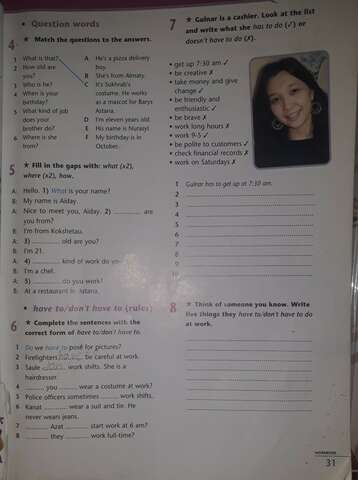 • Question words
4 ★ Match the questions to the answers.
1 What is that?
2 How old are
you?
3 Who is he?
4 When is your
birthday?
5 What kind of job
does your
brother do?
6 Where is she
from?
A He's a pizza delivery
boy.
B She's from Almaty.
C It's Sukhrab's
costume. He works
as a mascot for Barys
Astana.
D I'm eleven years old.
E His name is Nursiyt
F My birthday is in
October.
5 ★ Fill in the gaps with: what (x2),
where (x2), how.
A: Hello. 1) What is your name?
B: My name is Aiday.
A: Nice to meet you, Aiday. 2) ............ are
you from?
B: I'm from Kokshetau.
A: 3) ............ old are you?
B: I'm 21.
A: 4) ............ kind of work do you
B: I'm a chef.
A: 5) ............ do you work!
B: At a restaurant in Astana.
• have to/don't have to (rules)
6 ★ Complete the sentences with the
correct form of have to/don't have to.
1 Do we have to pose for pictures?
2 Firefighters have be careful at work.
3 Saule work shifts. She is a
hairdresser.
4 ........ you ........ wear a costume at work?
5 Police officers sometimes ........ work shifts.
6 Kanat ........ wear a suit and tie. He
never wears jeans.
7 ........ Azat ........ start work at 6 am?
8 ........ they ........ work full-time?
7 ★ Gulnar is a cashier. Look at the list
and write what she has to do (✓) or
doesn't have to do (✗).
• get up 7:30 am ✓
• be creative ✗
• take money and give
change ✓
• be friendly and
enthusiastic ✓
• be brave ✗
• work long hours ✗
• work 9-5 ✓
• be polite to customers ✓
• check financial records ✗
• work on Saturdays ✗
1 Gulnar has to get up at 7:30 am.
2
3
4
5
6
7
8
9
10
8 ★ Think of someone you know. Write
five things they have to/don't have to do
at work.
WORKBOOK
31